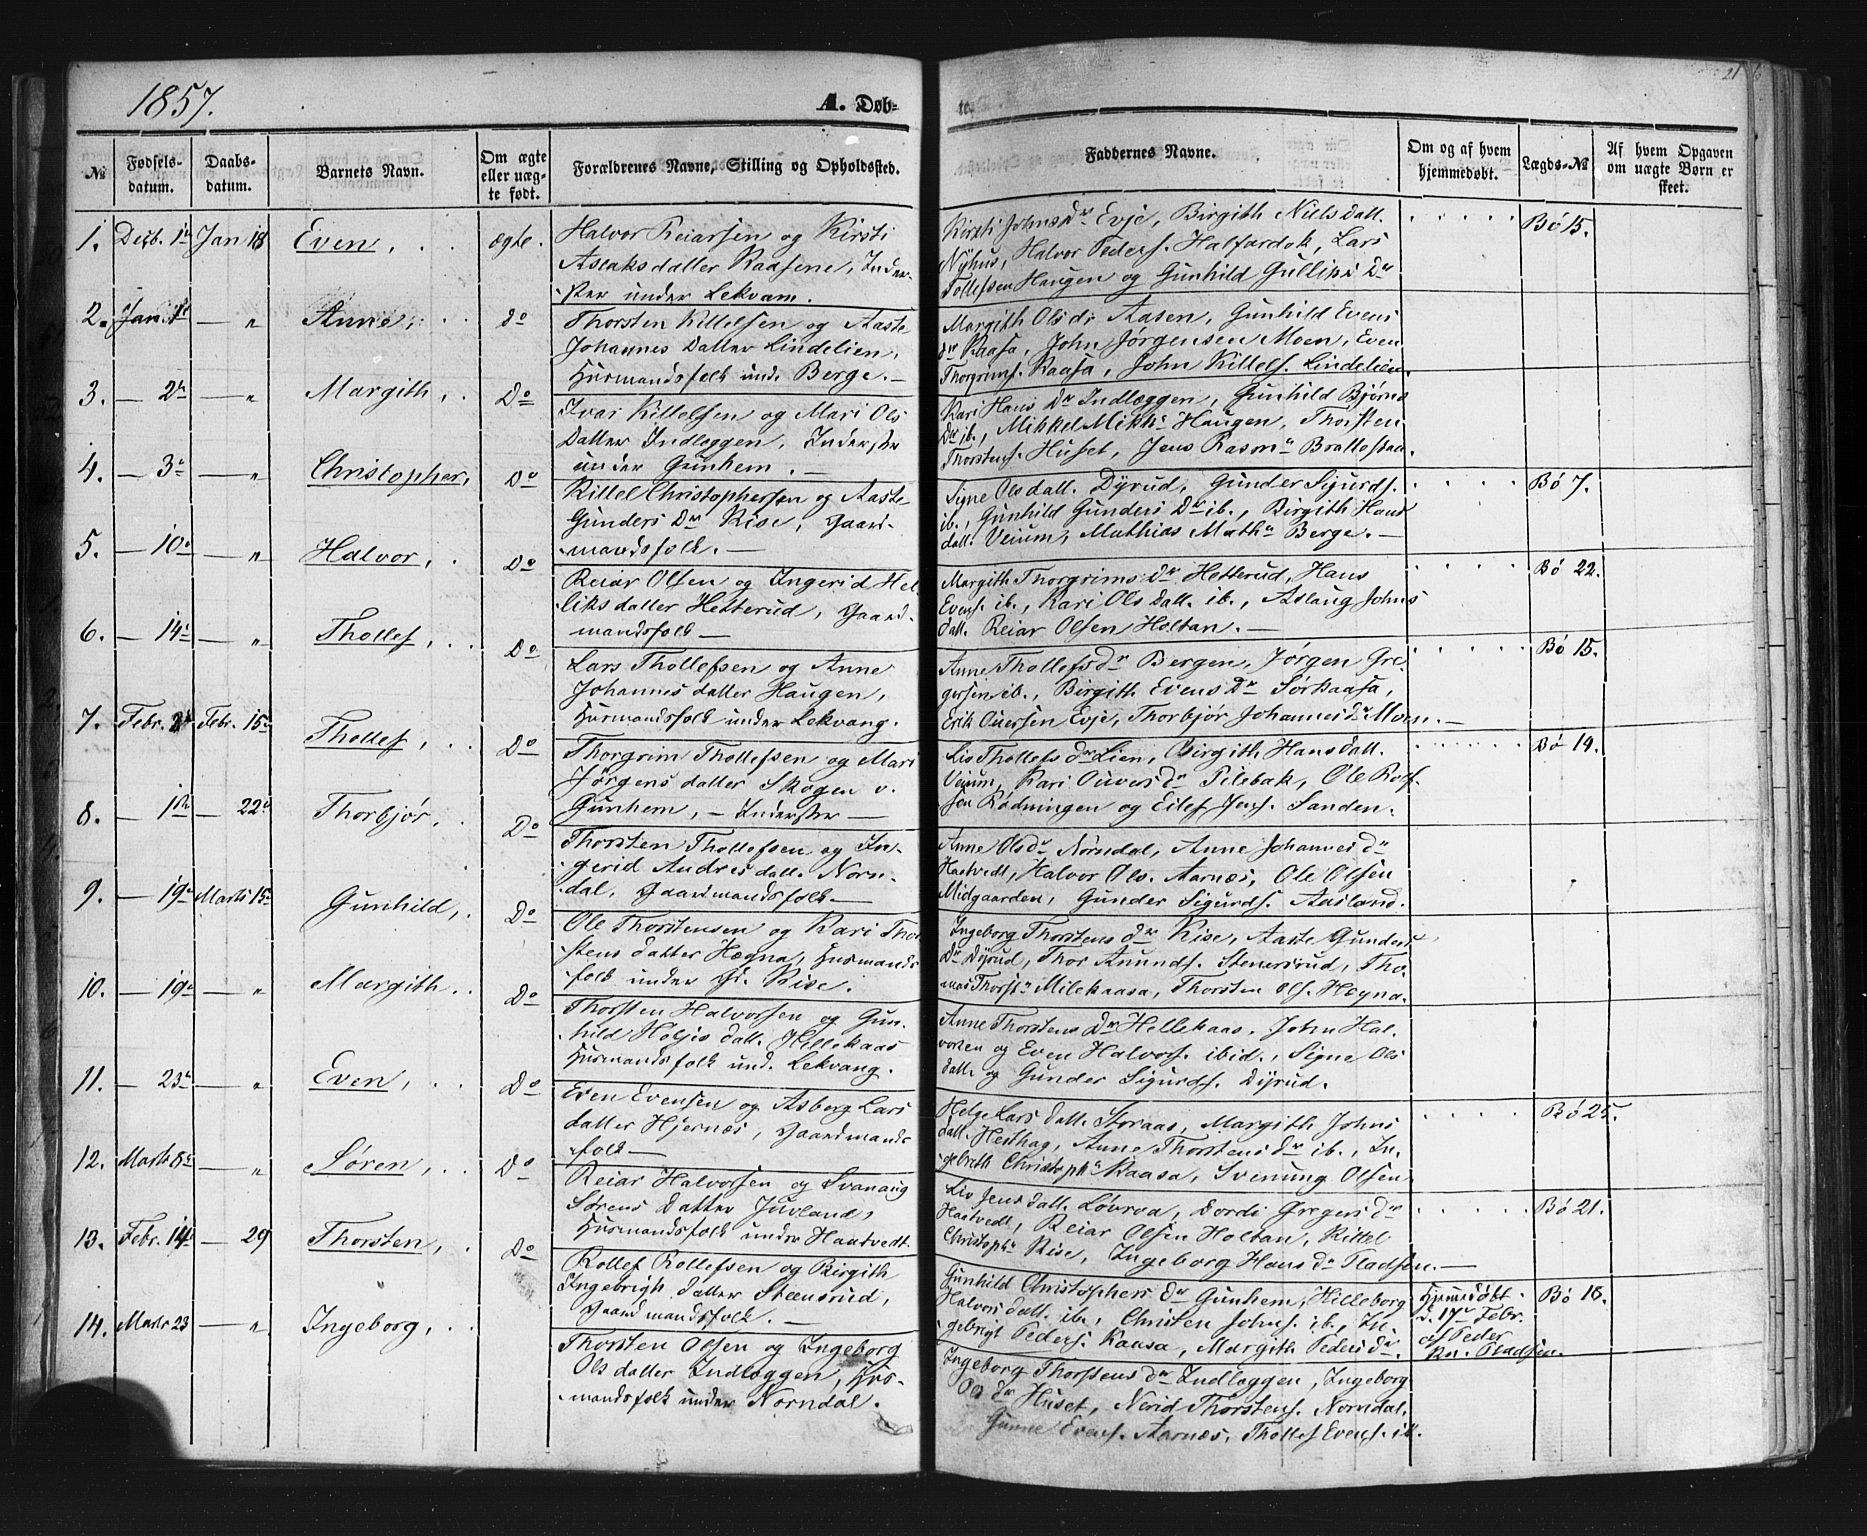 1857.
A. Døb-
te.
21
№
Fødsels-
datum.
Daabs-
datum.
Barnets Navn.
Om ægte
eller uæg-
te født.
Forældrenes Navne, Stilling og Opholdssted.
Faddernes Navne.
Om og af hvem
hjemmedøbt.
Lægds-№
Af hvem Opgaven
om uægte Børn er
skeet.
1. Decb. 1te Jan 18 Even, ægte.
Halvor Reiarsen og Kirsti
Aslaksdatter Raasene, Inder-
ster under Lekvam.
Kirsti Johnsdr Evje, Birgith Nielsdatt.
Nyhus, Halvor Peders. Halfardok, Lars
Tollefsen Haugen og Gunhild Gulliks Dr
Bø 15.
2. Jan. 1te — " Anne, do
Thorsten Kittelsen og Aaste
Johannes Datter Lindelien,
Husmandsfolk und. Berge. —
Margith Olsdr Aasen, Gunhild Evens
dr Kaasa, John Jørgensen Moen, Even
Thorgrims. Kaasa, John Kittels. Lindelien.
3. — 2n — " Margith, Do
Ivar Kittelsen og Mari Ols
Datter Indlæggen, Inderster
under Gunhem. —
Kari Hans Dr Indlæggen, Gunhild Bjørns
Dr ib., Mikkel Mikks Haugen, Thorsten
Thorstens. Huset, Jens Rasm Brattestaa.
4. — 3e — " Christopher, Do
Kittel Christophersen og Aaste
Gunders Dr Rise, Gaard-
mandsfolk. —
Signe Olsdatt. Dyrud, Gunder Sigurds.
ib., Gunhild Gunders Dr ib., Birgith Hans
datt. Veium, Mathias Math Berge. —
Bø 7.
5. — 10e — " Halvor, Do
Reiar Olsen og Ingerid Hel-
liksdatter Hetterud, Gaard-
mandsfolk —
Margith Thorgrims dr Hetterud, Hans
Evens. ib., Kari Olsdatt. ib., Aslaug Johns
datt. Reiar Olsen Holtan. —
Bø 22.
6. — 14e — " Thollef, Do
Lars Thollefsen og Anne
Johannesdatter Haugen,
Husmandsfolk under Lekvang.
Anne Thollefsdr Bergen, Jørgen Gre-
gersen ib., Birgith Evens Dr Sørkaasa,
Erik Oversen Evje, Thorbjør Johannesdr Moen. —
Bø 15.
7. Febr. Febr. 15de Thollef, Do
Thorgrim Thollefsen og Mari
Jørgensdatter Skogen v.
Gunhem, — Inderster —
Liv Thollefs dr Lien, Birgith Hansdatt.
Veium, Kari Ouversdr Pilebak, Ole Rolf-
sen Rødningen og Eilef Jens. Sanden.
Bø 14.
8. — 1ste — 22de Thorbjør, Do
Thorsten Thollefsen og In-
gerid Andresdatt. Norn-
dal, Gaardmandsfolk —
Anne Olsdr Nørndal, Anne Johannesdr
Hastvedt, Halvor Ols. Aarnæs, Ole Olsen
Midgaarden, Gunder Sigurds. Aasland.
9. — 19e Marts 15de Gunhild, Do
Ole Thorstensen og Kari Thor-
stens datter Hægna, Husmands
folk under Gr. Rise.
Ingeborg Thorstens dr Rise, Aaste Gunders
Dr Dyrud, Thor Amunds. Stenersrud, Tho-
mas Thorst Milekaasa, Thorsten Ols. Hægna.
10. — 19e — " Margith. Do
Thorsten Halvorsen og Gun-
hild Holjesdatt. Hellekaas
Husmandsfolk und. Lekvang.
Anne Thorstens Dr Hellekaas, John Hal-
vorsen og Even Halvors. ibid., Signe Ols
datt. og Gunder Sigurds. Dyrud.
11. — 23e — " Even, Do
Even Evensen og Asberg Lars
datter Hjernæs, Gaardmands
folk —
Helge Lars datt. Storaas, Margith Johns
datt. Hesthag, Anne Thorstensdr ib., In-
gebreth Christoph Kaasa, Svenung Olsen
Bø 25.
12. Marts 8e — " Søren, Do
Reiar Halvorsen og Svanaug
Sørens Datter Juvland,
Husmandsfolk under Haatvedt.
Liv Jensdatt. Løvrva, Dordi Gregersdr
Haatvedt, Reiar Olsen Holtan, Kittel
Christoph Rise, Ingeborg Hansdr Pladsen. —
Bø 21.
13. Febr. 14e — 29 Thorsten, Do
Rollef Rollefsen og Birgith
Ingebrigh datter Steensrud,
Gaardmandsfolk. —
Gunhild Christophers dr Gunhem, Hilleborg
Halvorsdatt. ib., Christen Johns. ib., In-
gebrigt Peders. Kaasa, Margith Pedersdr.
Hjemmedøbt
d. 17e Febr.
af Peder
Kn. Pladsen
Bø 18.
14. Marts 23 — " Ingeborg, "
Thorsten Olsen og Ingeborg
Olsdatter Indlæggen, Hus-
mandsfolk under Norndal.
Ingeborg Thorstens dr Indlæggen, Ingeborg
Ols dr Huset, Nerid Thorstens. Norndal,
Gunne Evens. Aarnæs, Thollef Evens. ib.